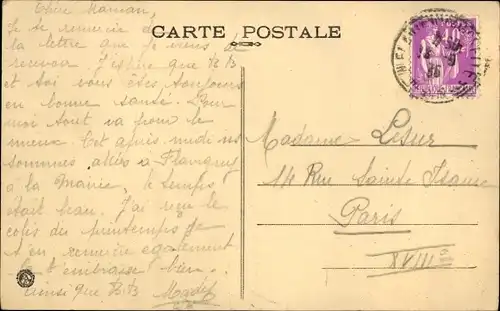 Chère Maman,
CARTE POSTALE
Je te remercie de
la lettre que je viens de
recevoir. J'espère que
et toi vous êtes toujours
en bonne santé. Pour
moi tout va pour le
mieux. Cet après-midi ns
sommes allés à Flavigny
à la Mairie, le temps
était beau. J'ai reçu le
colis du printemps je
t'en remercie également
Je t'embrasse bien
ainsi que
Madame Lesur
14 Rue Sainte Isaure
Paris
XVIII